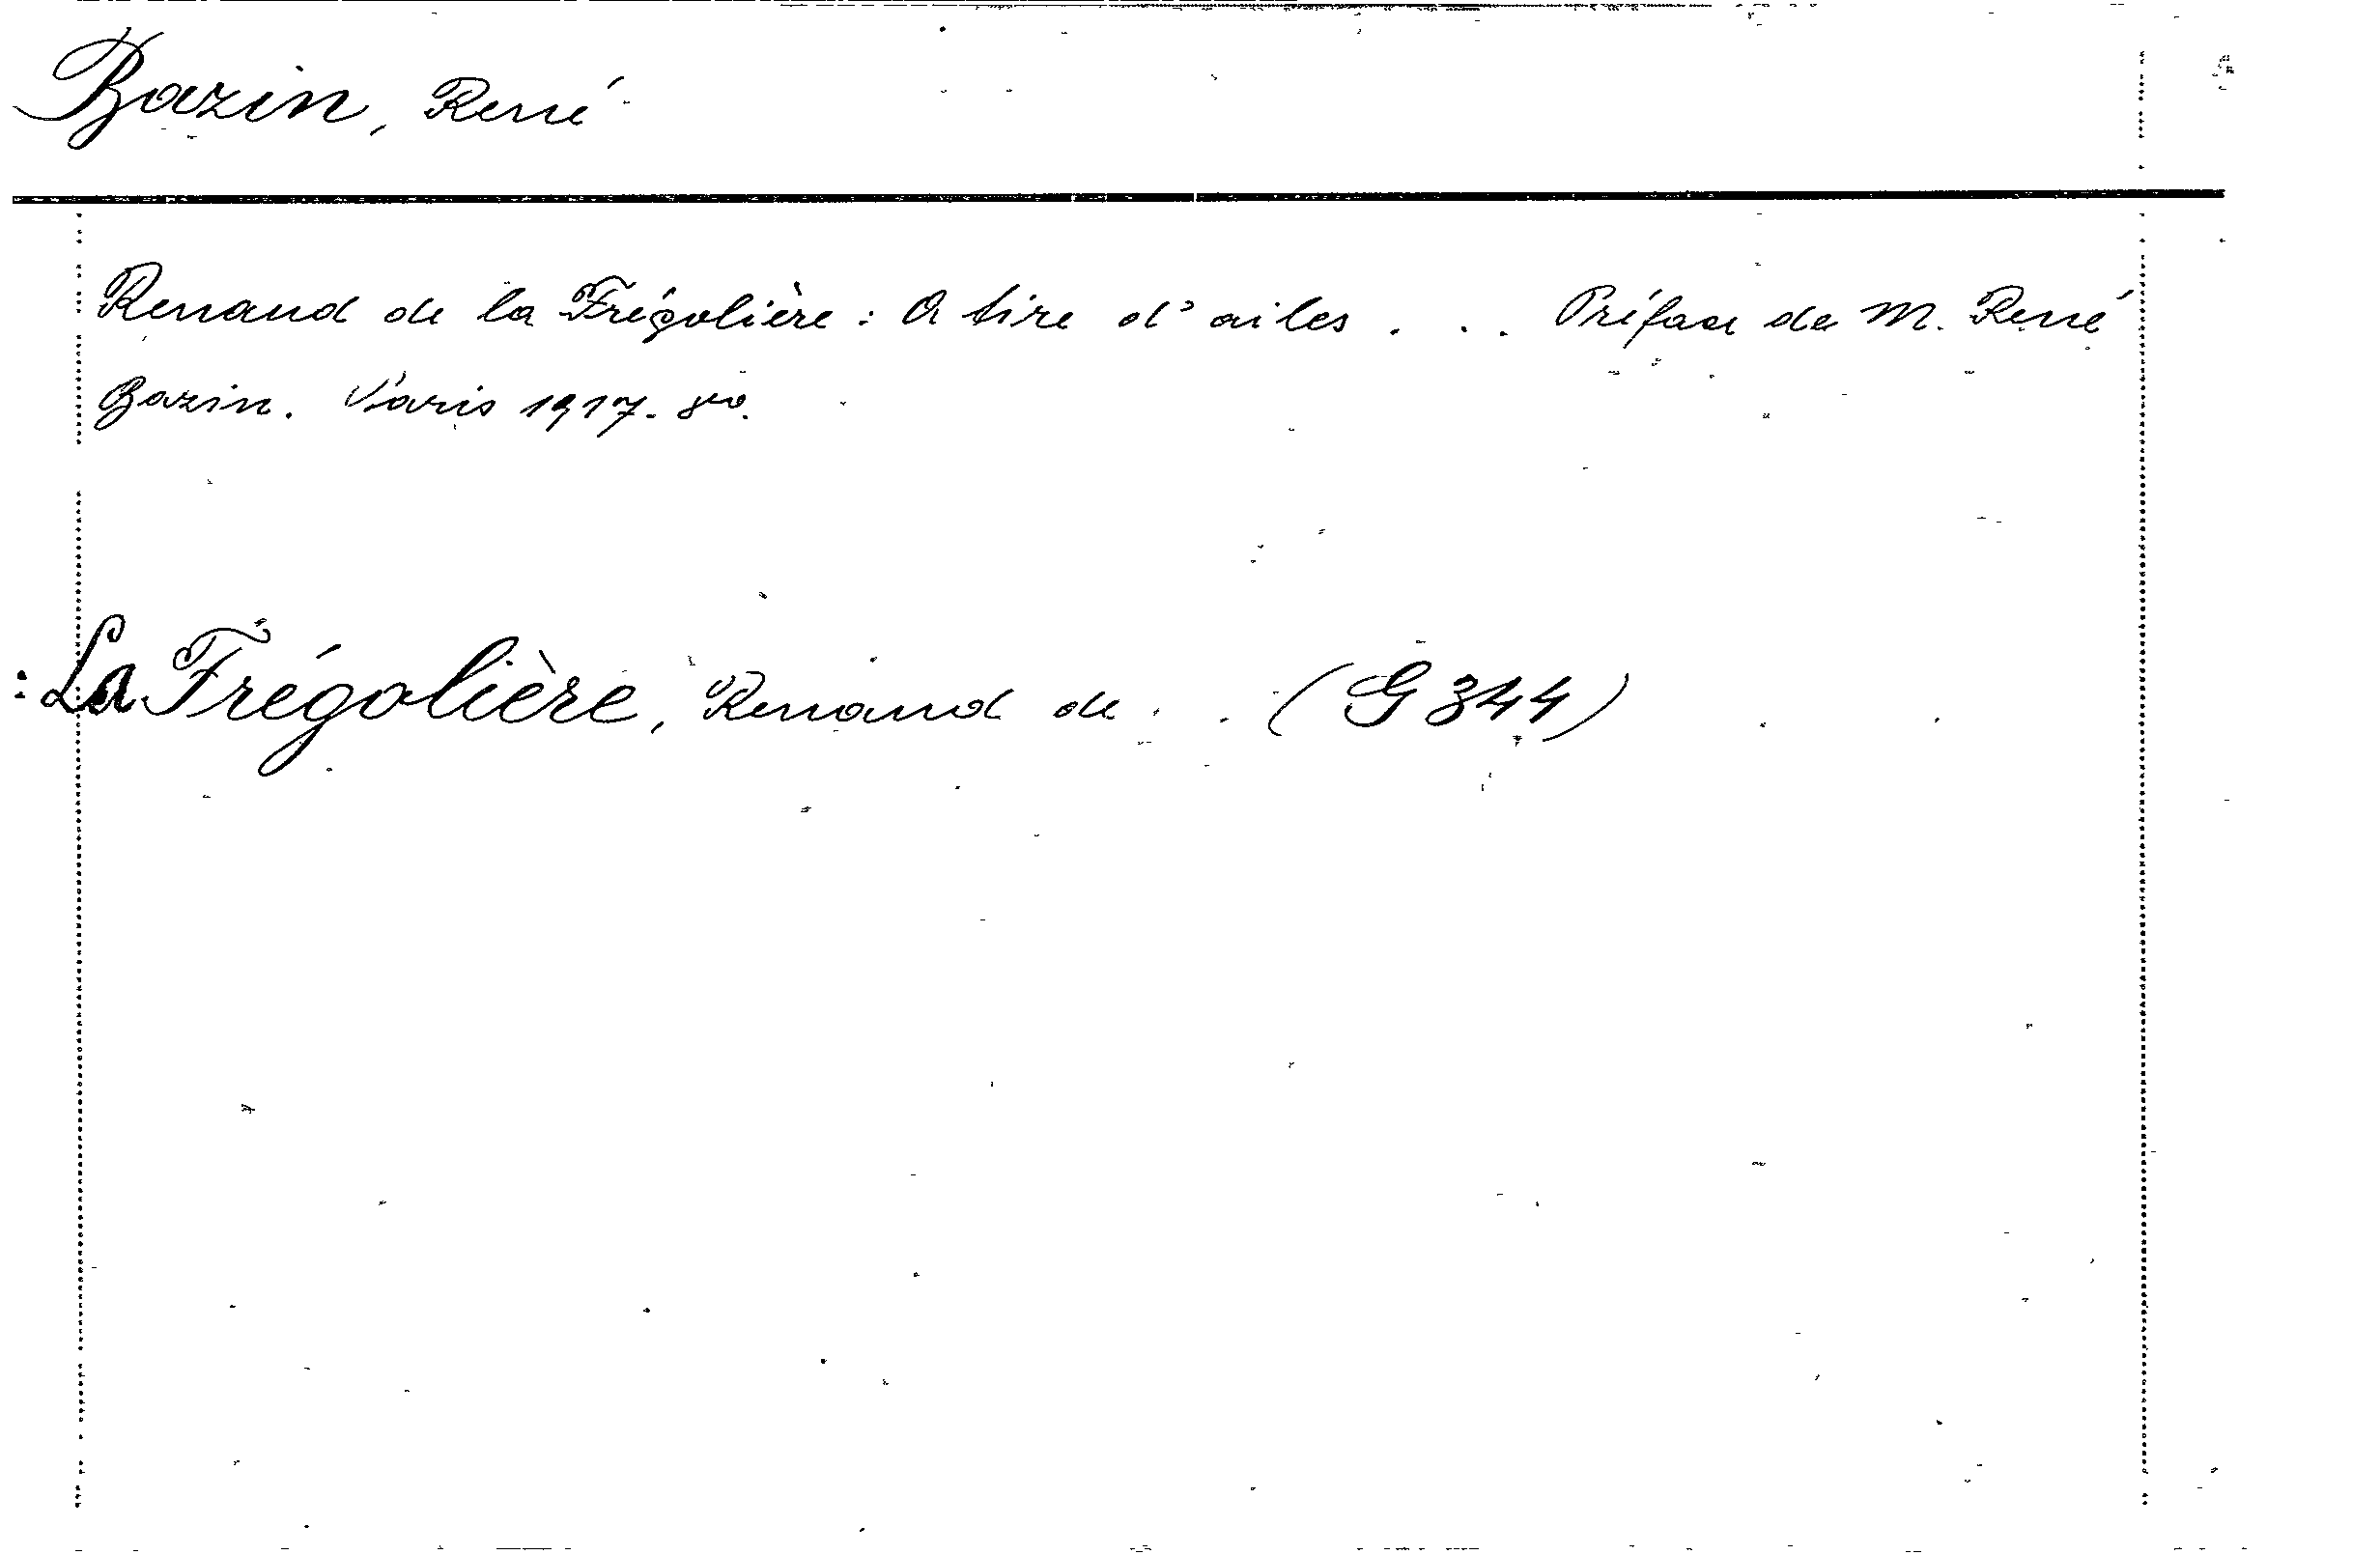 Bazin, René
Renaud de la Frégolière: A tire d'ailes . . . Préface de M. René
Bazin. Paris 1917. 8vo.
: La Frégolière, Renaud de . . (G 344)